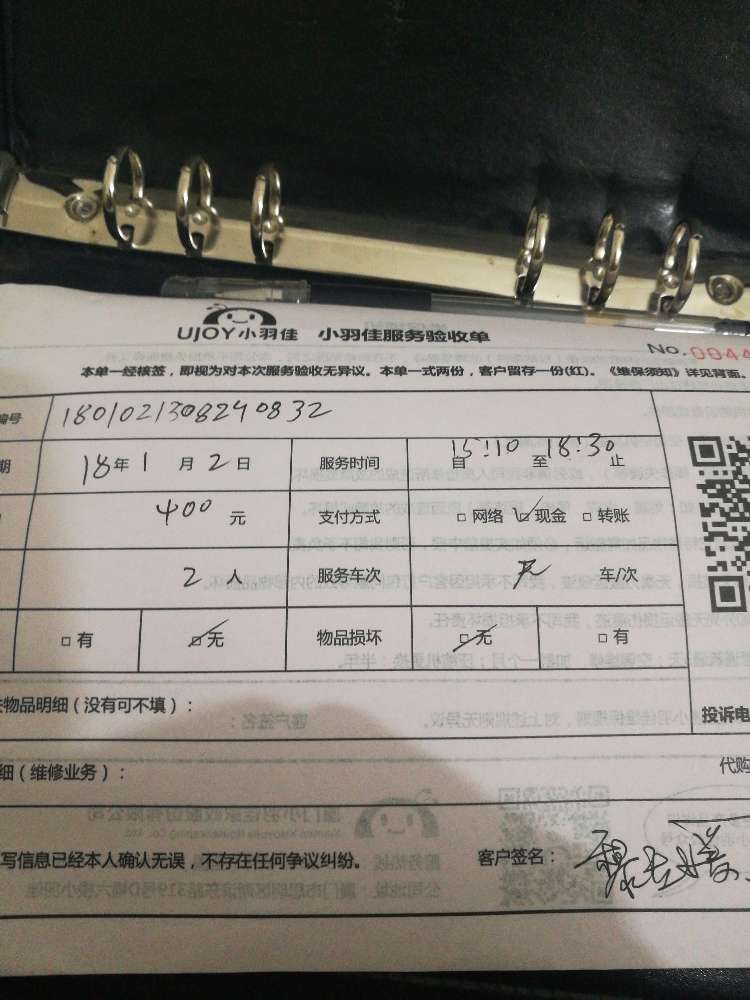 UJOY小羽佳 小羽佳服务验收单
No.0044
本单一经核签，即视为对本次服务验收无异议。本单一式两份，客户留存一份(红)。《维保须知》详见背面。
编号 180102130824 0832
期 18年1月2日 服务时间 自15:10至18:30止
400元 支付方式 □网络 ☑现金 □转账
2人 服务车次 无 车/次
□有 ☑无 物品损坏 ☑无 □有
物品明细（没有可不填）：
投诉电
细（维修业务）：
代购
写信息已经本人确认无误，不存在任何争议纠纷。 客户签名：